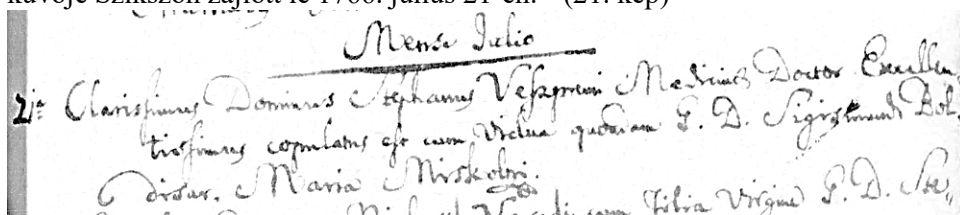 kúvője Szikszón zajlott le 1766. július 21-én. (21. kép)
Mense Julio
21a Clarissimus Dominus Stephanus Veszpremi Medicinae Doctor Excellen
tissimus copulatus est cum Vidua quondam G. D. Sigismundi Bol
disar. Maria Miskoltzi.
cum filia Virgine G. D. Ste,,